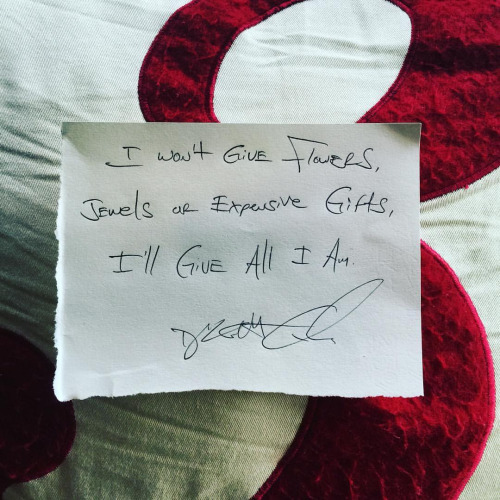 I won't Give Flowers,
Jewels or Expensive Gifts,
I'll Give All I Am.